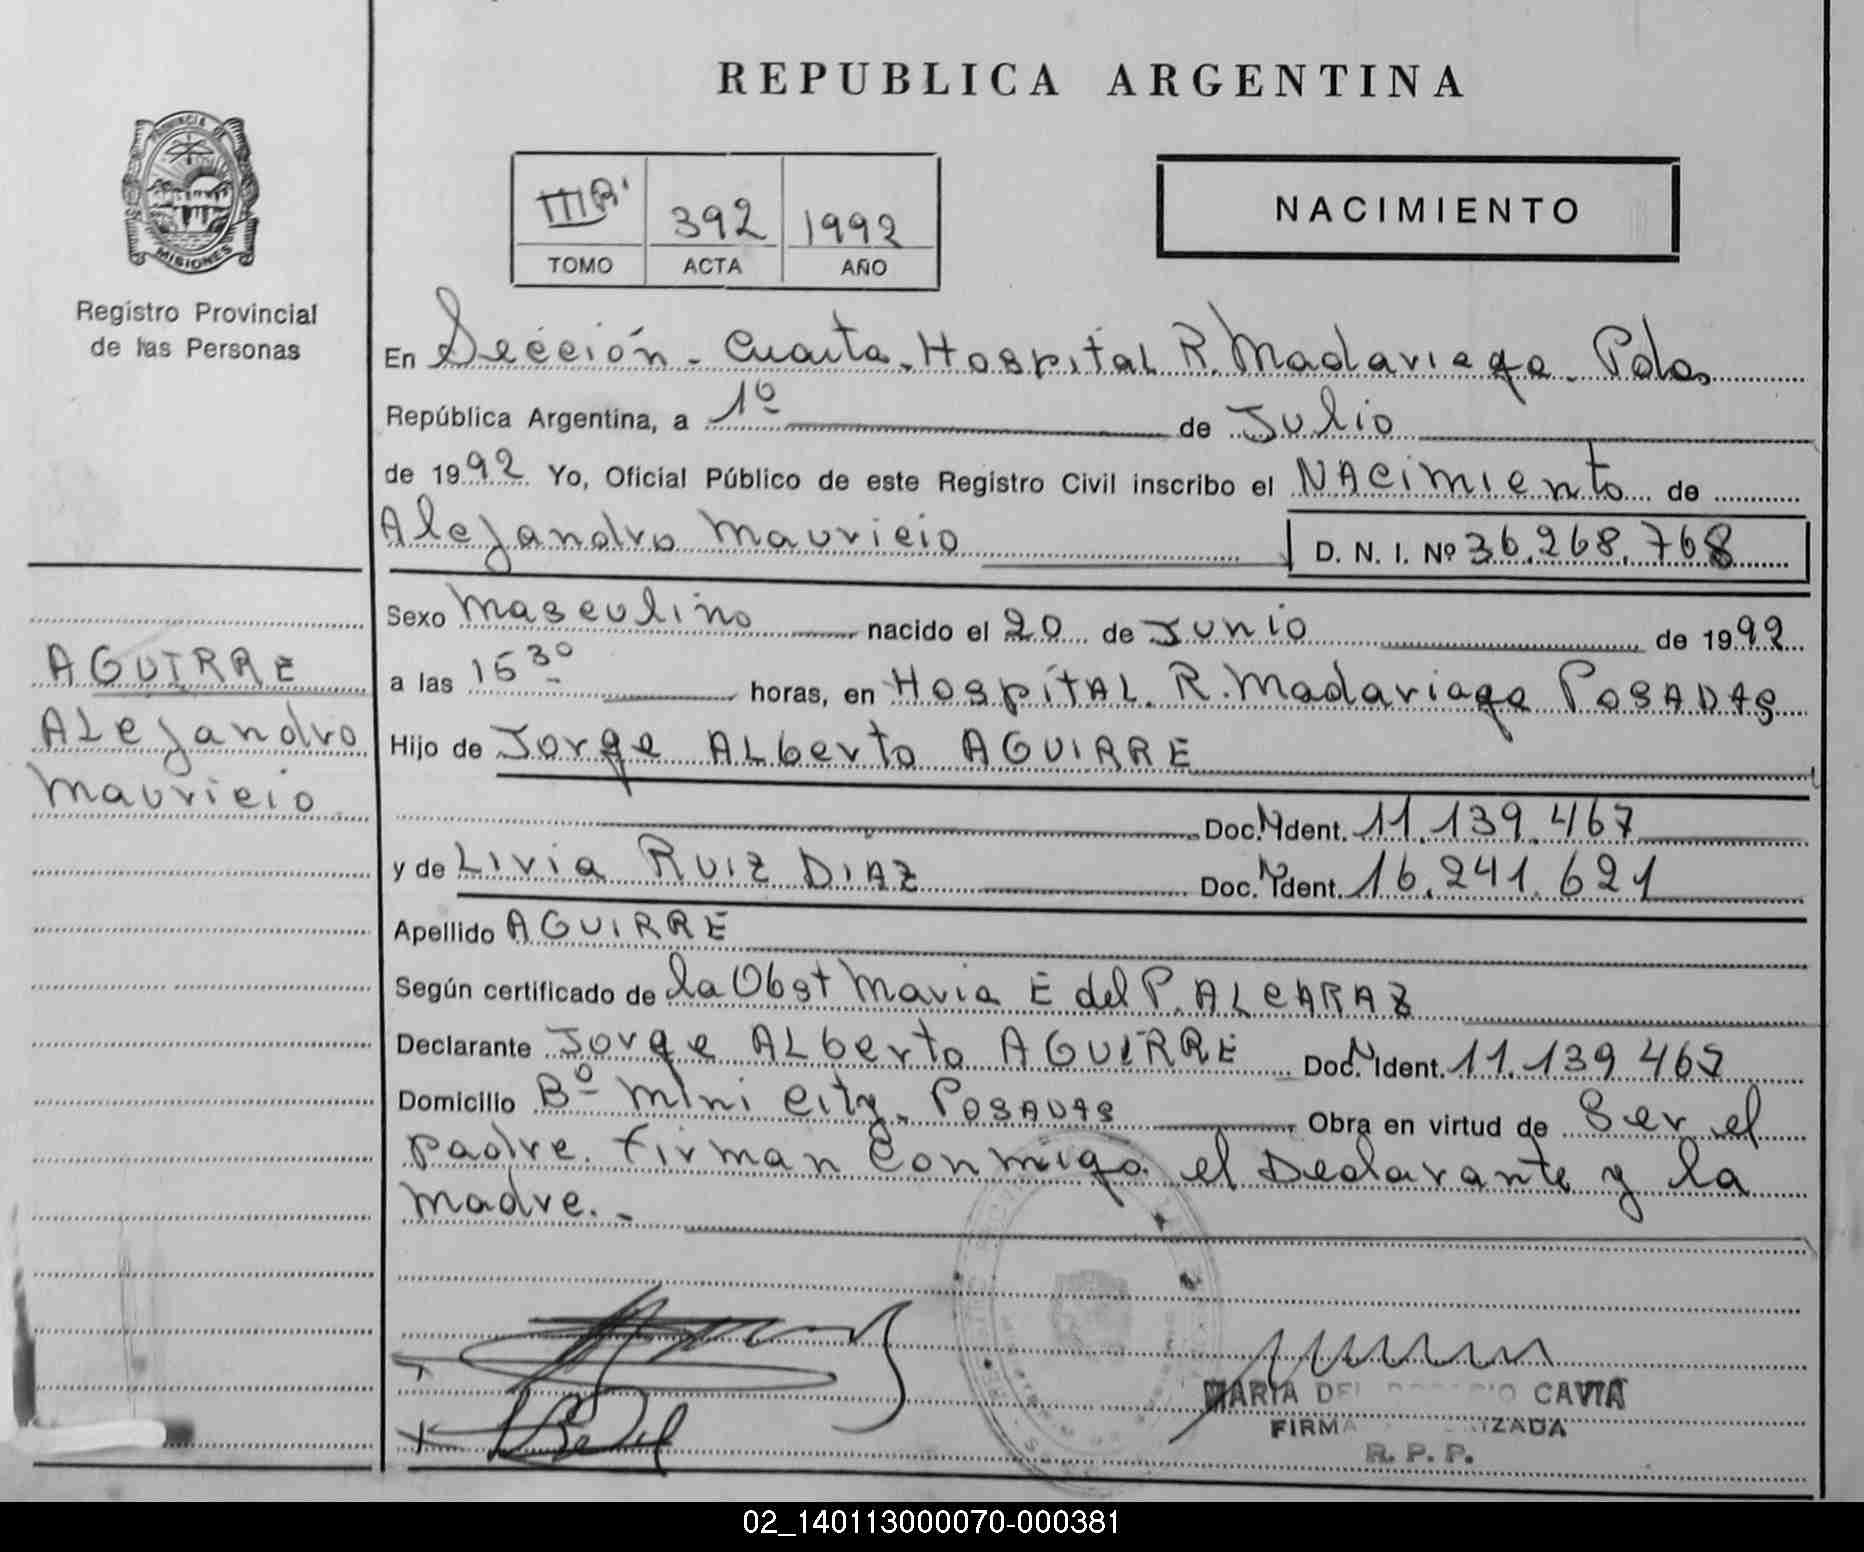 REPUBLICA ARGENTINA
PROVINCIA DE
MISIONES
Registro Provincial
de las Personas
392 1992
TOMO ACTA AÑO
NACIMIENTO
En Sección - Cuarta - Hospital R. Madariaga - Pdas
República Argentina, a 1º de Julio
de 1992 Yo, Oficial Público de este Registro Civil inscribo el NAcimiento de
Alejandro Mauricio D. N. I. Nº 36.268.768
Sexo Masculino nacido el 20 de Junio de 1992
a las 15 30 horas, en HospiTAL R. Madariaga POSADAS
Hijo de Jorge ALberto AGUIRRE
Doc. N Ident. 11.139.467
y de Livia RUIZ DIAZ Doc. N Ident. 16.241.621
Apellido AGUIRRE
Según certificado de la Obst Maria E del P. ALCARAZ
Declarante Jorge ALberto AGUIRRE Doc. N Ident. 11.139 467
Domicilio Bº Mini City. POSADAS Obra en virtud de Ser el
padre. Firman Conmigo el Declarante y la
madre. -
AGUIRRE
ALejandro
Mauricio
MARIA DEL CAVIA
R. P. P.
02_140113000070-000381